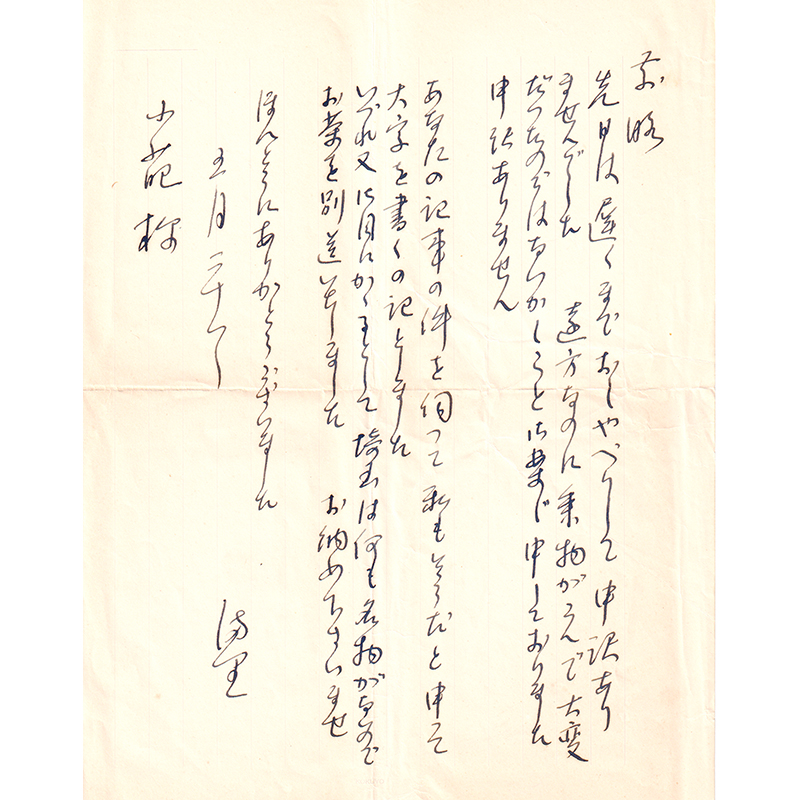 前略
先日は遅くまでおしゃべりして申訳あり
ませんでした 遠方なのに乗物がこんで大変
だったのではないかしらと御案じ申しておりました
申訳ありません
あなたの記事の件を伺って私もそうだと申して
大字を書くの記としました
いづれ又お目にかくとして埼玉は何も名物がないので
お茶を別送いたしました お納め下さいませ
ほんとうにありがとうございました
五月二十
小 様